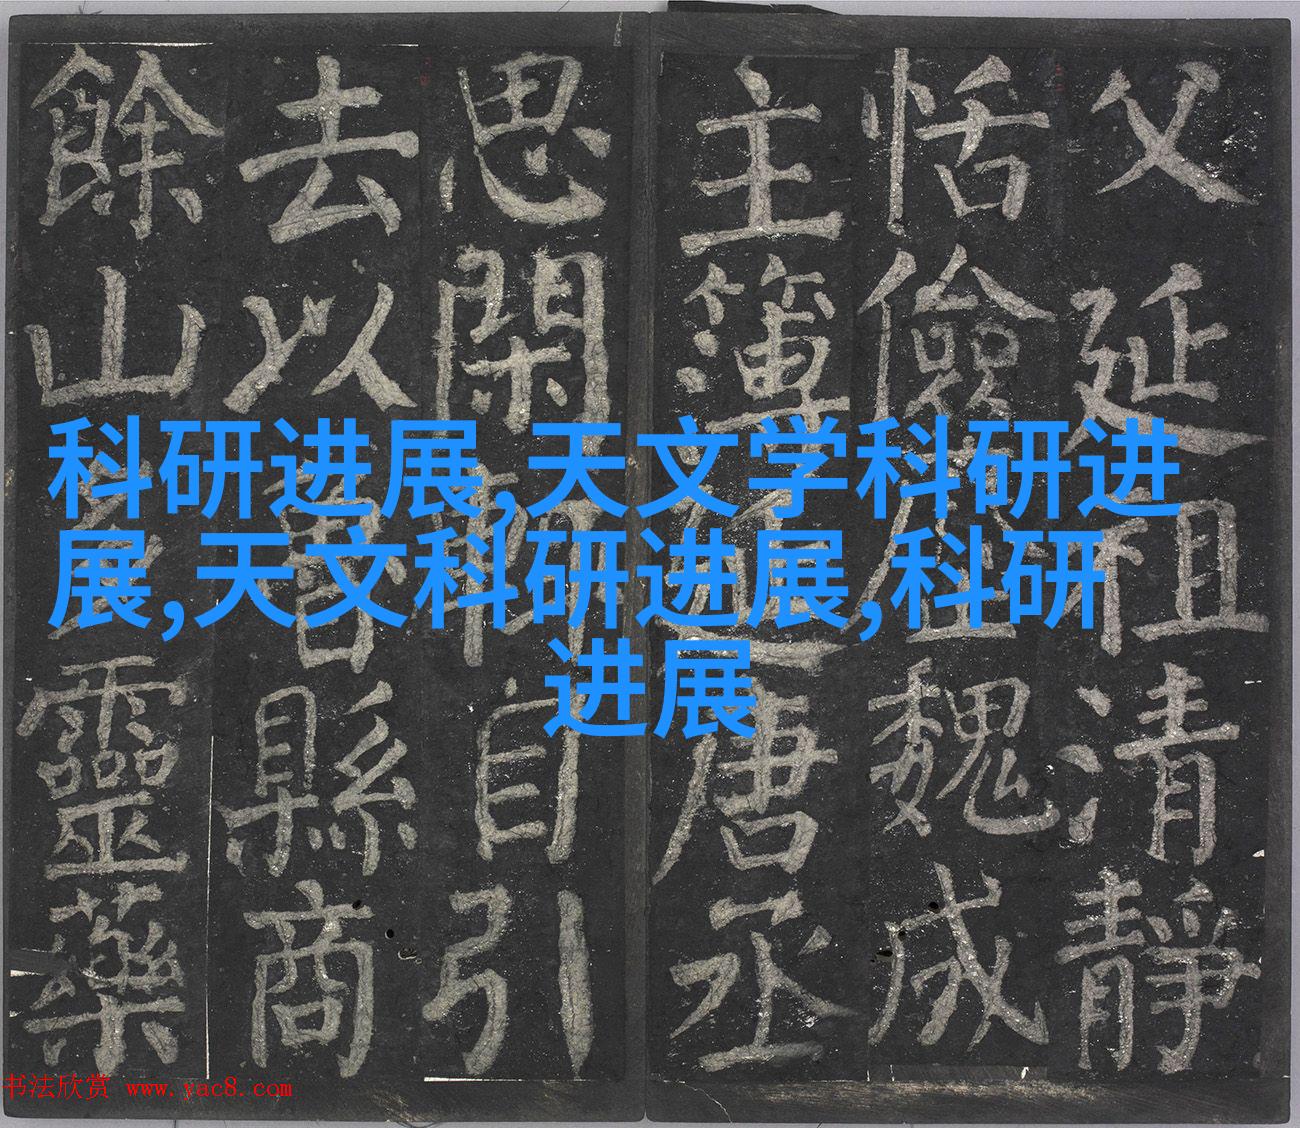 科研进展,天文学科研进
展,天文科研进展,科研
进展
父延祖清静
恬儉仕魏成
主簿延唐丞
思閑輒自引
去以魯縣商
餘山多靈藥
书法欣赏 www.yac8.com